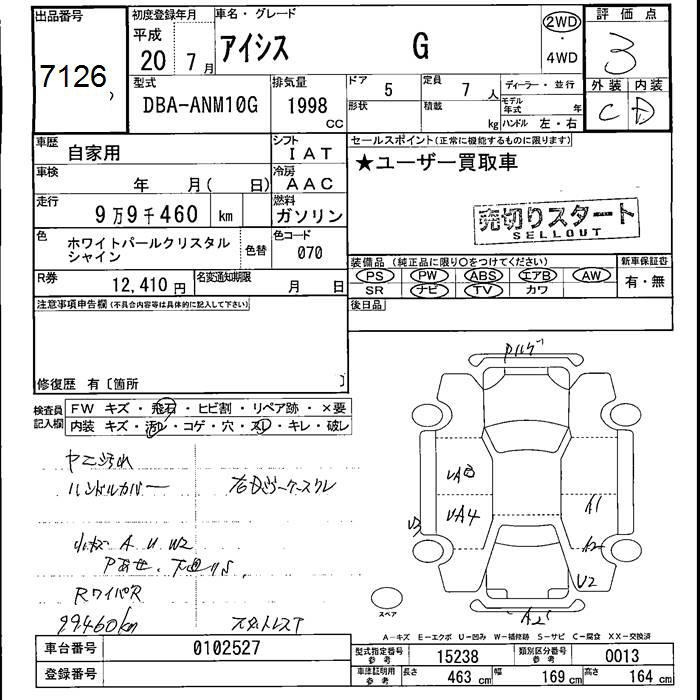 出品番号
7126
初度登録年月
平成
20 7月
車名・グレード
アイシス G
2WD
・
4WD
評価点
3
外装 内装
C D
型式
DBA-ANM10G
排気量
1998
CC
ドア
5
定員
7 人
形状
積載
kg
ディーラー・並行
モデル年式 年
ハンドル 左・右
車歴
自家用
シフト
IAT
セールスポイント(正常に機能するものに限ります)
★ユーザー買取車
車検
年 月( 日)
冷房
AAC
走行
9万9千460 km
燃料
ガソリン
売切りスタート
SELLOUT
色
ホワイトパールクリスタル
シャイン
色替
色コード
070
装備品(純正品に限り○をつけてください)
新車保証書
PS PW ABS エアB AW
SR ナビ TV カワ
有・無
R券
12,410 円
名変通知期限
月 日
後日品
注意事項申告欄(不具合内容等は具体的に記入して下さい)
修復歴 有〔箇所 〕
検査員
記入欄
FW キズ・飛石・ヒビ割・リペア跡・×要
内装 キズ・汚レ・コゲ・穴・スレ・キレ・破レ
ヤニ汚れ
ハンドルカバー
小キズ A U W2
Rワイパ
99460km
A1
A2
U2
スペア
A-キズ E-エクボ U-凹み W-補修跡 S-サビ C-腐食 XX-交換済
車台番号
0102527
登録番号
型式指定番号
参考
15238
類別区分番号
参考
0013
車庫証明用
参考
長さ
463 cm
幅
169 cm
高さ
164 cm